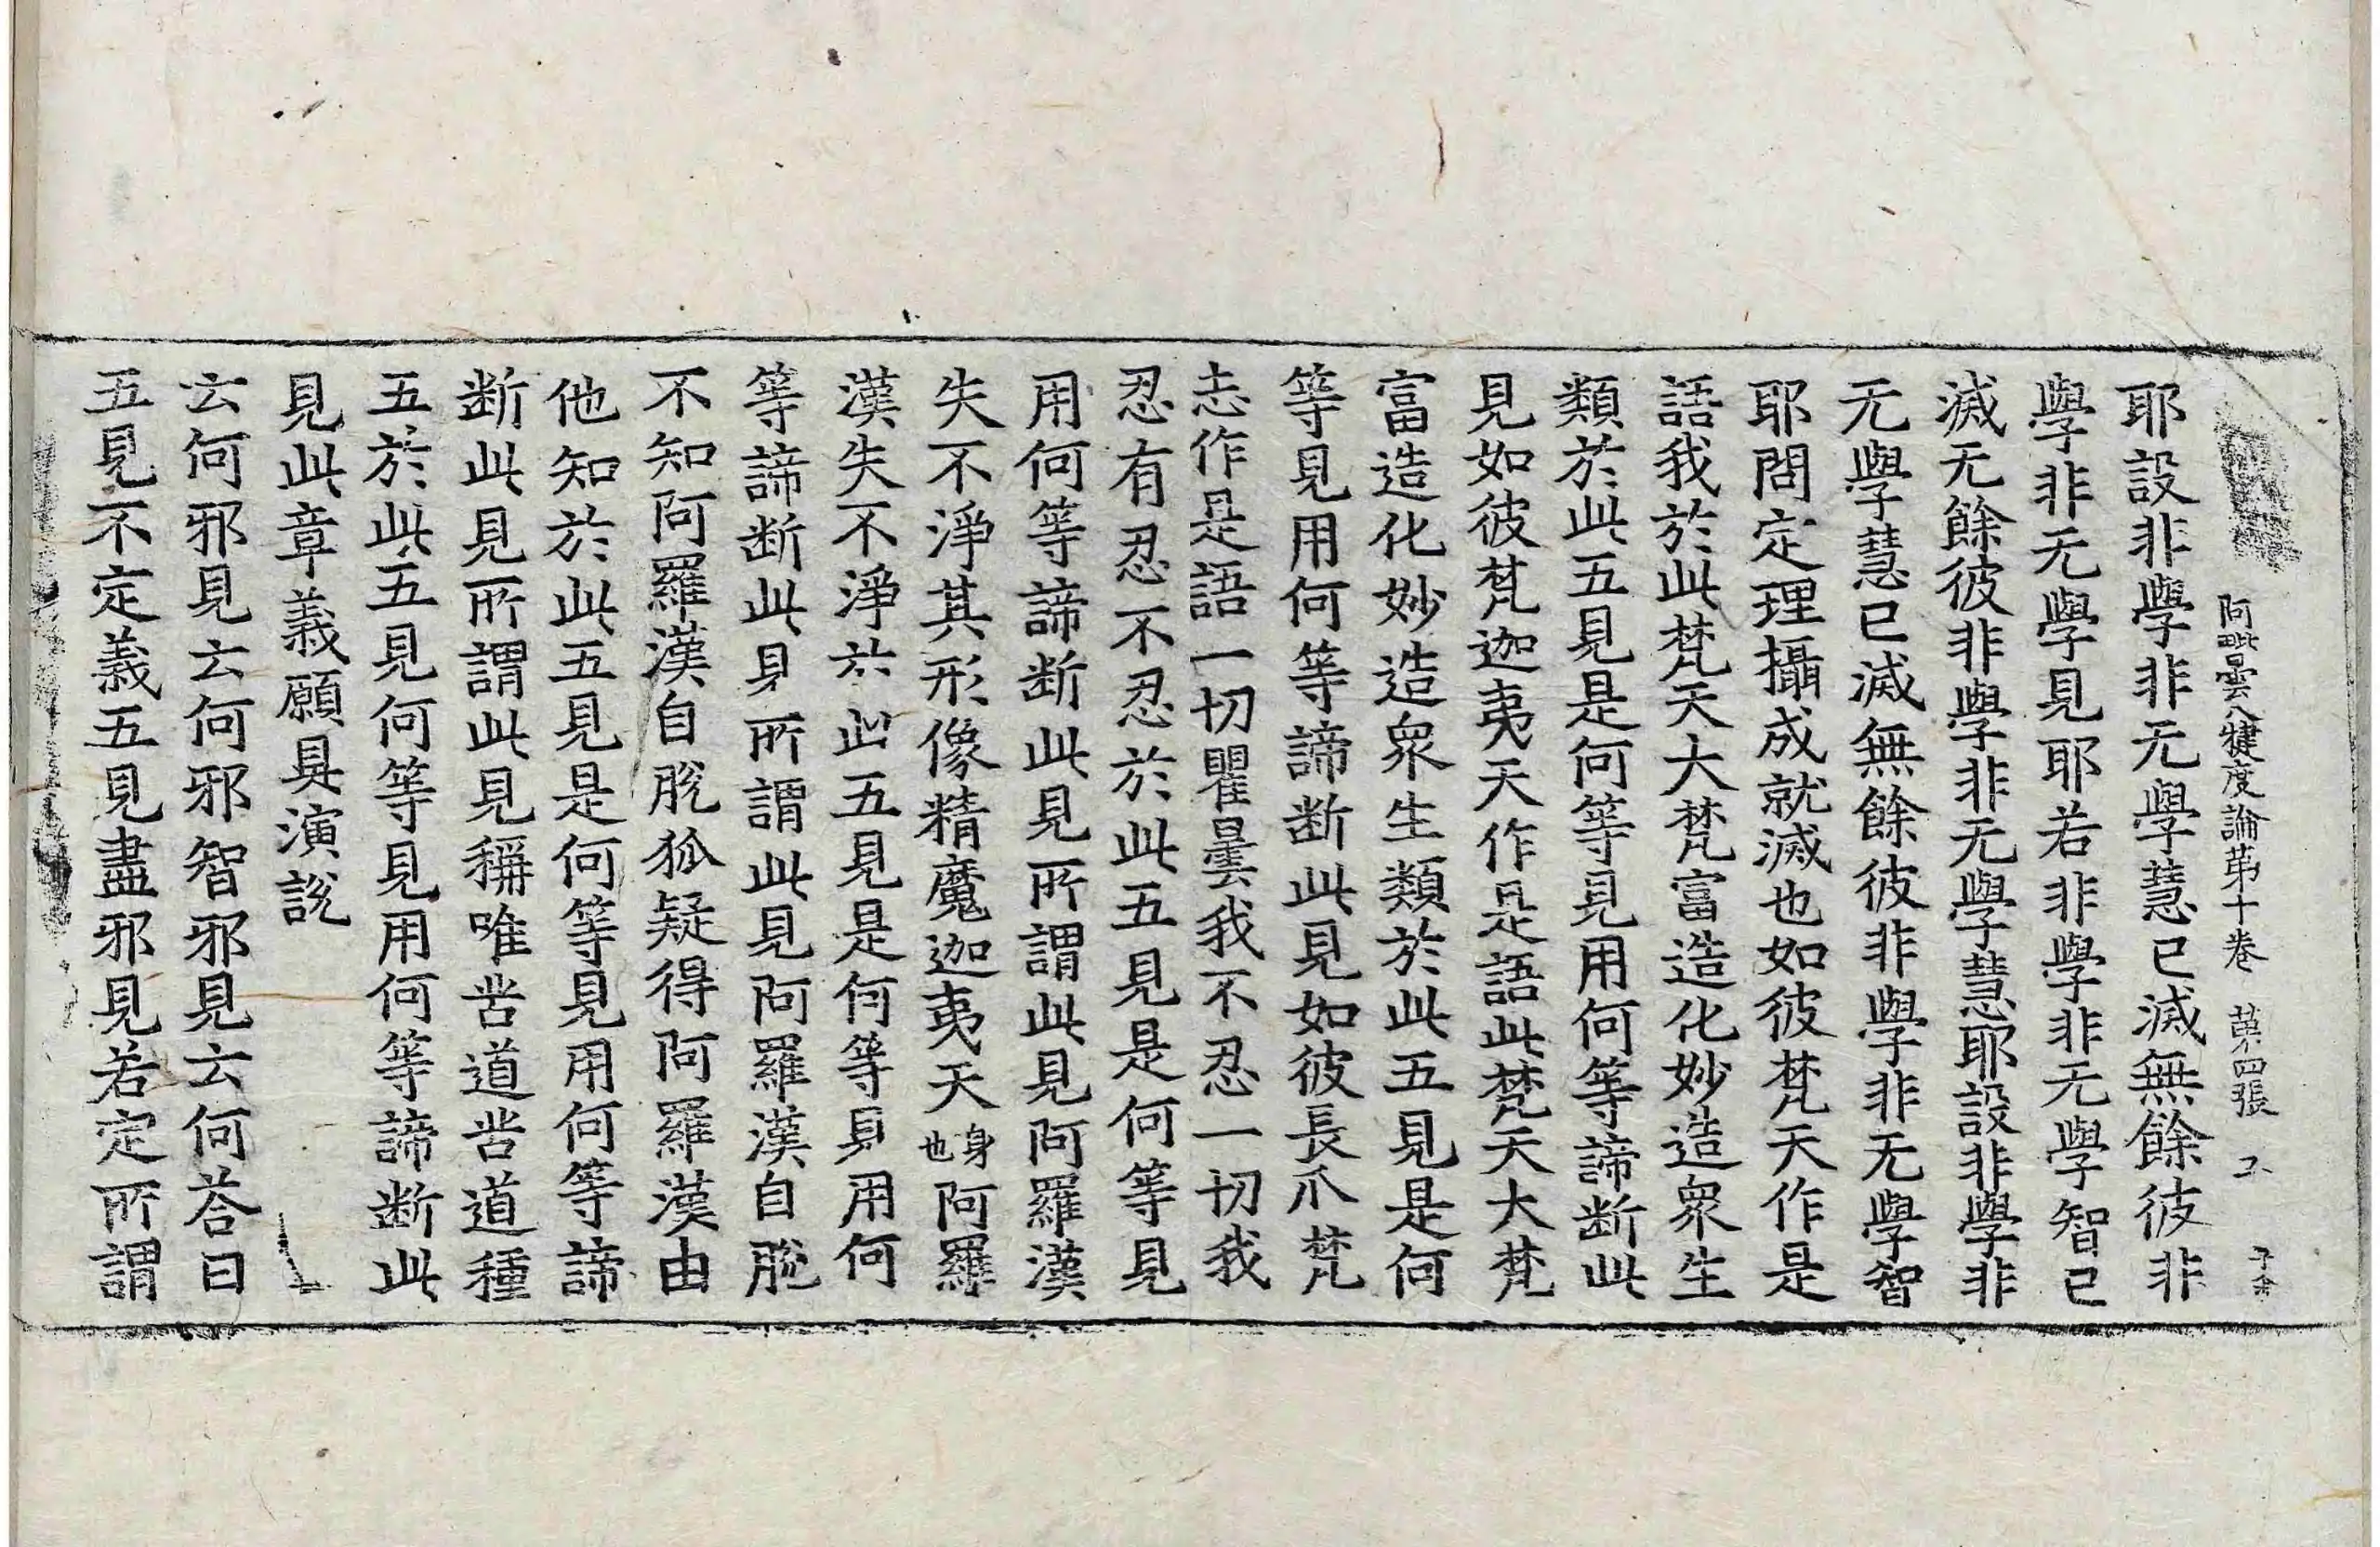 阿毗曇八犍度論第十卷 第四張
耶設非學非无學慧已滅無餘彼非
學非无學見耶若非學非无學智已
滅无餘彼非學非无學慧耶設非學非
无學慧已滅無餘彼非學非无學智
耶問定理攝成就滅也如彼梵天作是
語我於此梵天大梵富造化妙造衆生
類於此五見是何等見用何等諦断此
見如彼梵迦夷天作是語此梵天大梵
富造化妙造衆生類於此五見是何
等見用何等諦断此見如彼長爪梵
志作是語一切瞿曇我不忍一切我
忍有忍不忍於此五見是何等見
用何等諦断此見所謂此見阿羅漢
失不淨其形像精魔迦夷天身也阿羅
漢失不淨於此五見是何等見用何
等諦断此見所謂此見阿羅漢自脫
不知阿羅漢自脫狐疑得阿羅漢由
他知於此五見是何等見用何等諦
断此見所謂此見稱唯苦道苦道種
五於此五見何等見用何等諦断此
見此章義願具演說
云何邪見云何邪智邪見云何荅曰
五見不定義五見盡邪見若定所謂